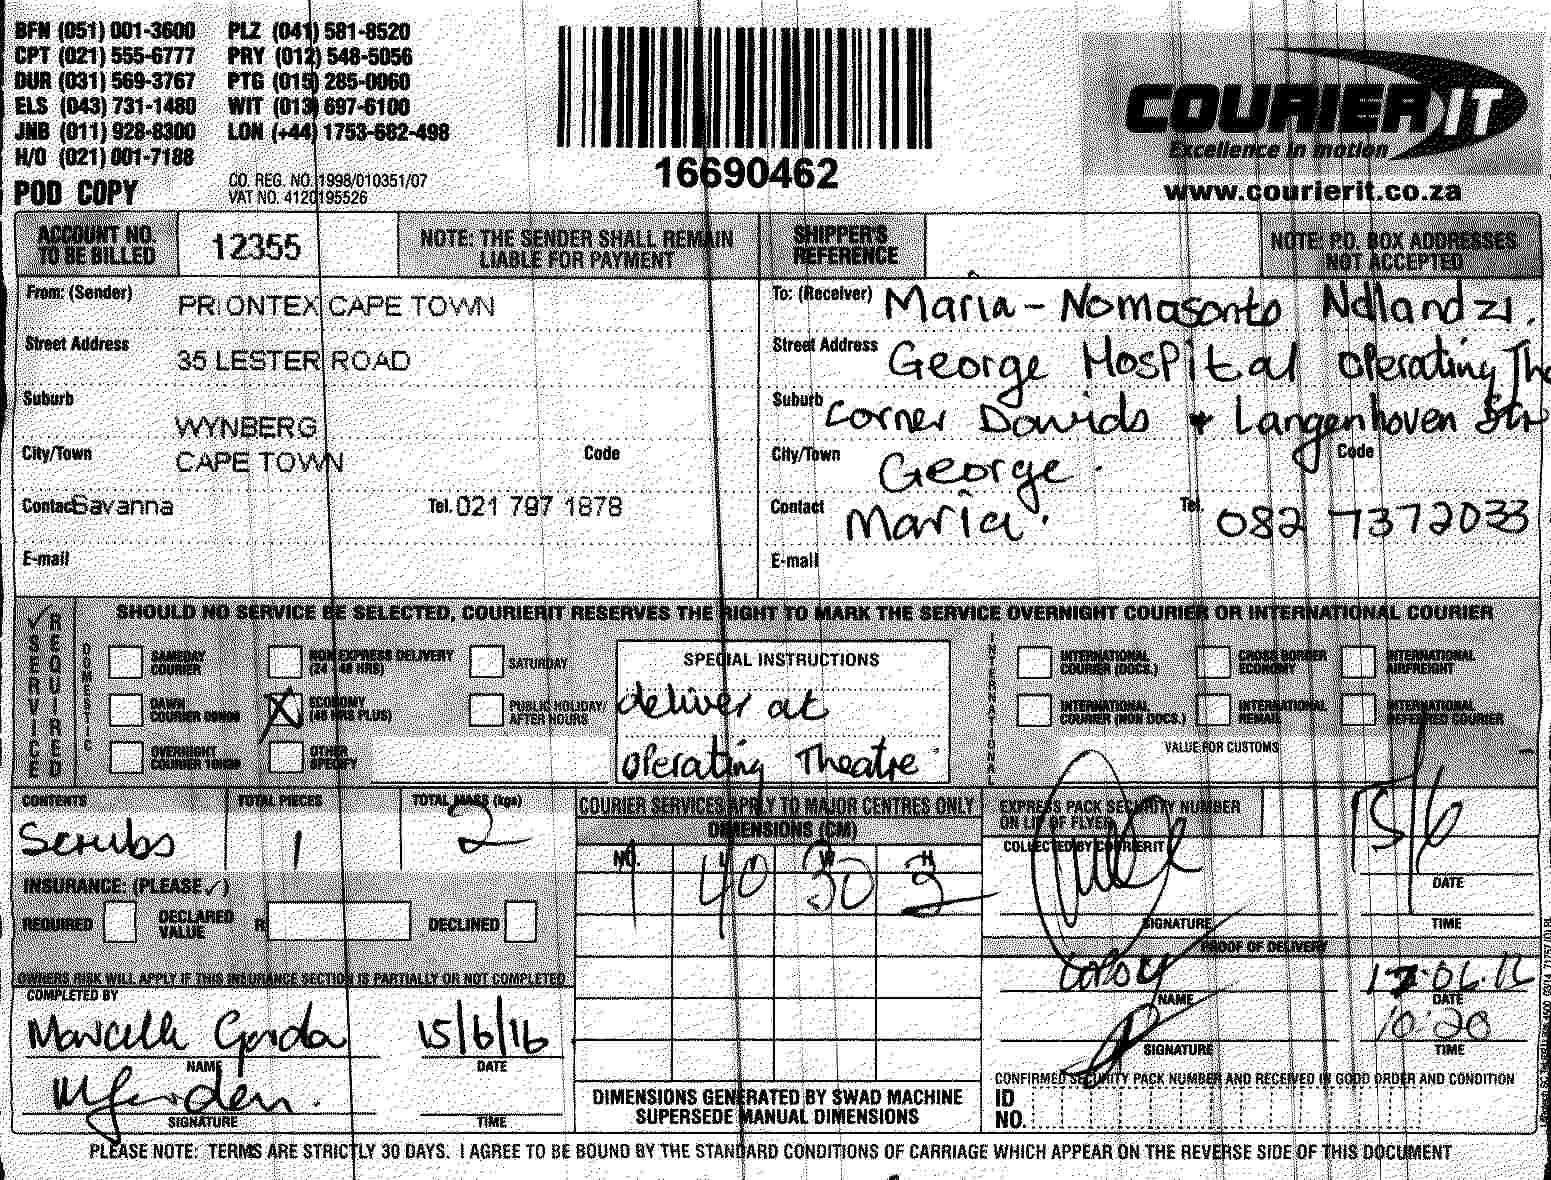 BFN (051) 001-3600 PLZ (041) 581-8520
CPT (021) 555-6777 PRY (012) 548-5056
DUR (031) 569-3767 PTG (015) 285-0060
ELS (043) 731-1480 WIT (013) 697-6100
JNB (011) 928-8300 LON (+44) 1753-682-498
H/O (021) 001-7188
POD COPY
CO. REG. NO. 1998/010351/07
VAT NO. 4120195526
16690462
COURIER IT
Excellence in motion
www.courierit.co.za
ACCOUNT NO. TO BE BILLED 12355
NOTE: THE SENDER SHALL REMAIN LIABLE FOR PAYMENT
SHIPPER'S REFERENCE
NOTE: P.O. BOX ADDRESSES NOT ACCEPTED
From: (Sender) PRIONTEX CAPE TOWN
Street Address 35 LESTER ROAD
Suburb WYNBERG
City/Town CAPE TOWN Code
Contact Savanna Tel. 021 797 1878
E-mail
To: (Receiver) Maria-Nomasonto Ndlandzi.
Street Address George Hospital operating The
Suburb corner Davids + Langenhoven Str
City/Town George. Code
Contact Maria. Tel. 082 7372033
E-mail
SERVICE REQUIRED
SHOULD NO SERVICE BE SELECTED, COURIERIT RESERVES THE RIGHT TO MARK THE SERVICE OVERNIGHT COURIER OR INTERNATIONAL COURIER
DOMESTIC
SAMEDAY COURIER
NON EXPRESS DELIVERY (24 - 48 HRS)
SATURDAY
DAWN COURIER 08H00
X ECONOMY (48 HRS PLUS)
PUBLIC HOLIDAY/ AFTER HOURS
OVERNIGHT COURIER 10H30
OTHER SPECIFY
SPECIAL INSTRUCTIONS
deliver at
operating Theatre
INTERNATIONAL
INTERNATIONAL COURIER (DOCS.)
CROSS BORDER ECONOMY
INTERNATIONAL AIRFREIGHT
INTERNATIONAL COURIER (NON DOCS.)
INTERNATIONAL REMAIL
INTERNATIONAL DEFERRED COURIER
VALUE FOR CUSTOMS
CONTENTS TOTAL PIECES TOTAL MASS (kgs)
Scrubs 1 2
INSURANCE: (PLEASE ✓)
REQUIRED DECLARED VALUE R DECLINED
OWNERS RISK WILL APPLY IF THIS INSURANCE SECTION IS PARTIALLY OR NOT COMPLETED
COMPLETED BY
15/6/16
NAME DATE
SIGNATURE TIME
COURIER SERVICES APPLY TO MAJOR CENTRES ONLY
DIMENSIONS (CM)
NO. L W H
1 40 30 2
DIMENSIONS GENERATED BY SWAD MACHINE
SUPERSEDE MANUAL DIMENSIONS
EXPRESS PACK SECURITY NUMBER
ON LIP OF FLYER
COLLECTED BY COURIERIT
15/6
DATE
SIGNATURE TIME
PROOF OF DELIVERY
NAME DATE
10:20
SIGNATURE TIME
CONFIRMED SECURITY PACK NUMBER AND RECEIVED IN GOOD ORDER AND CONDITION
ID NO.
PLEASE NOTE: TERMS ARE STRICTLY 30 DAYS. I AGREE TO BE BOUND BY THE STANDARD CONDITIONS OF CARRIAGE WHICH APPEAR ON THE REVERSE SIDE OF THIS DOCUMENT